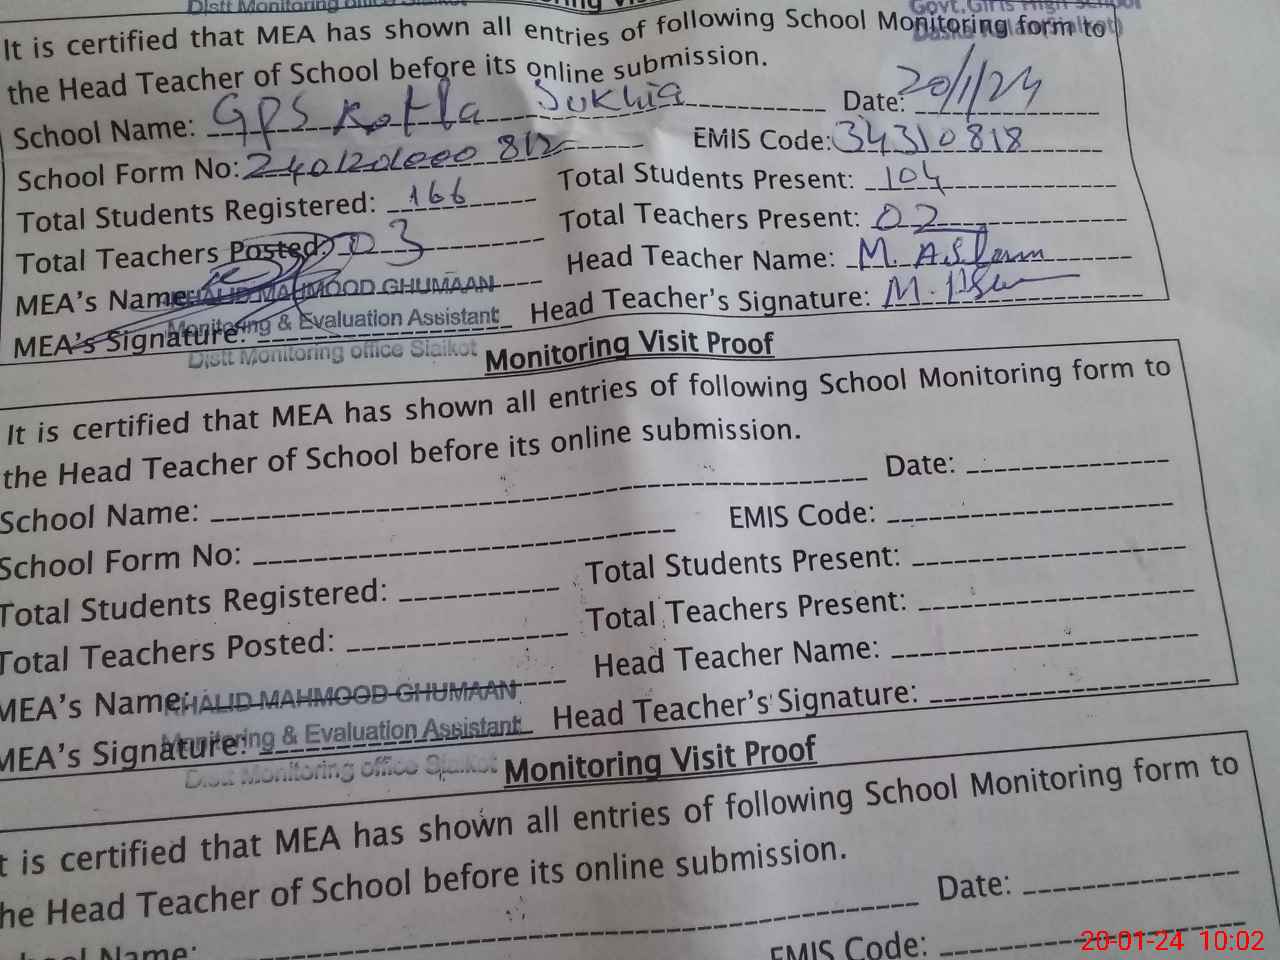 Distt Monitoring office Sialkot
Govt. Girls High School
It is certified that MEA has shown all entries of following School Monitoring form to
the Head Teacher of School before its online submission.
School Name: GPS Kotla Sukhia Date: 20/1/24
School Form No: 2401201000812 EMIS Code: 34310818
Total Students Registered: 166 Total Students Present: 104
Total Teachers Posted: 03 Total Teachers Present: 02
MEA's Name: KHALID MAHMOOD GHUMAAN Head Teacher Name: M. Aslam
MEA's Signature: Monitoring & Evaluation Assistant Head Teacher's Signature: M. Aslam
Distt Monitoring office Sialkot
Monitoring Visit Proof
It is certified that MEA has shown all entries of following School Monitoring form to
the Head Teacher of School before its online submission.
School Name: Date:
School Form No: EMIS Code:
Total Students Registered: Total Students Present:
Total Teachers Posted: Total Teachers Present:
MEA's Name: KHALID MAHMOOD GHUMAAN Head Teacher Name:
MEA's Signature: Monitoring & Evaluation Assistant Head Teacher's Signature:
Distt Monitoring office Sialkot
Monitoring Visit Proof
t is certified that MEA has shown all entries of following School Monitoring form to
he Head Teacher of School before its online submission.
Date:
hool Name: EMIS Code:
20-01-24 10:02